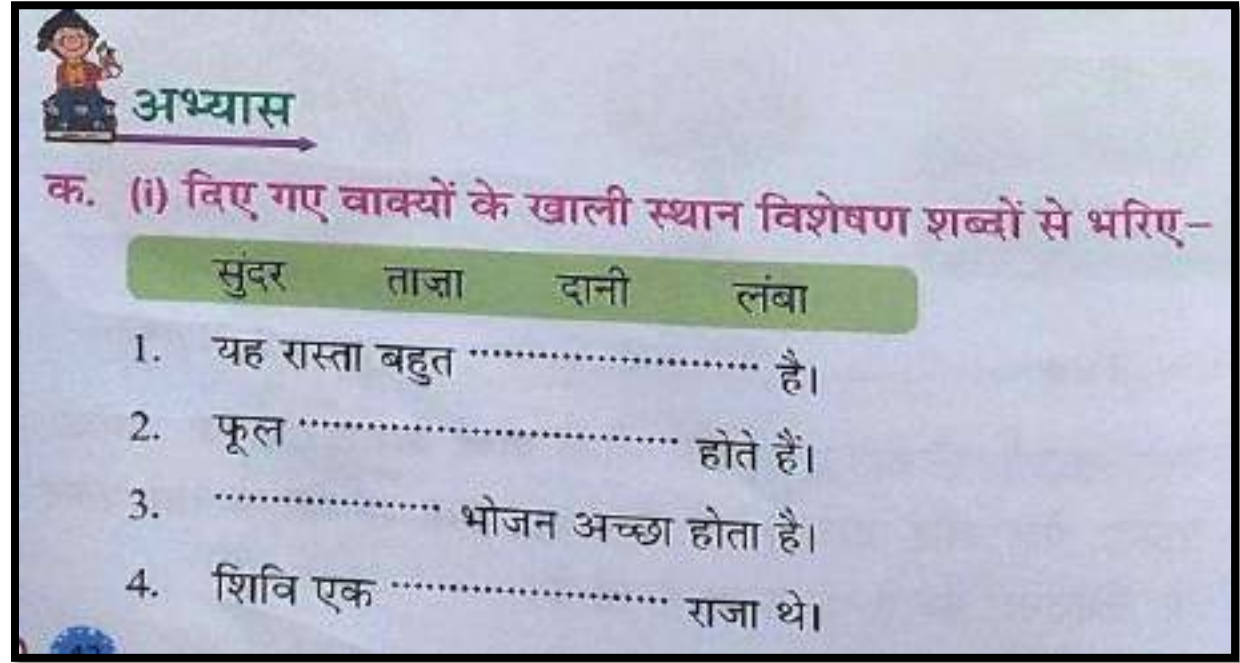 अभ्यास
क. (i) दिए गए वाक्यों के खाली स्थान विशेषण शब्दों से भरिए–
सुंदर ताज़ा दानी लंबा
1. यह रास्ता बहुत ........................... है।
2. फूल ................................... होते हैं।
3. ..................... भोजन अच्छा होता है।
4. शिवि एक .......................... राजा थे।